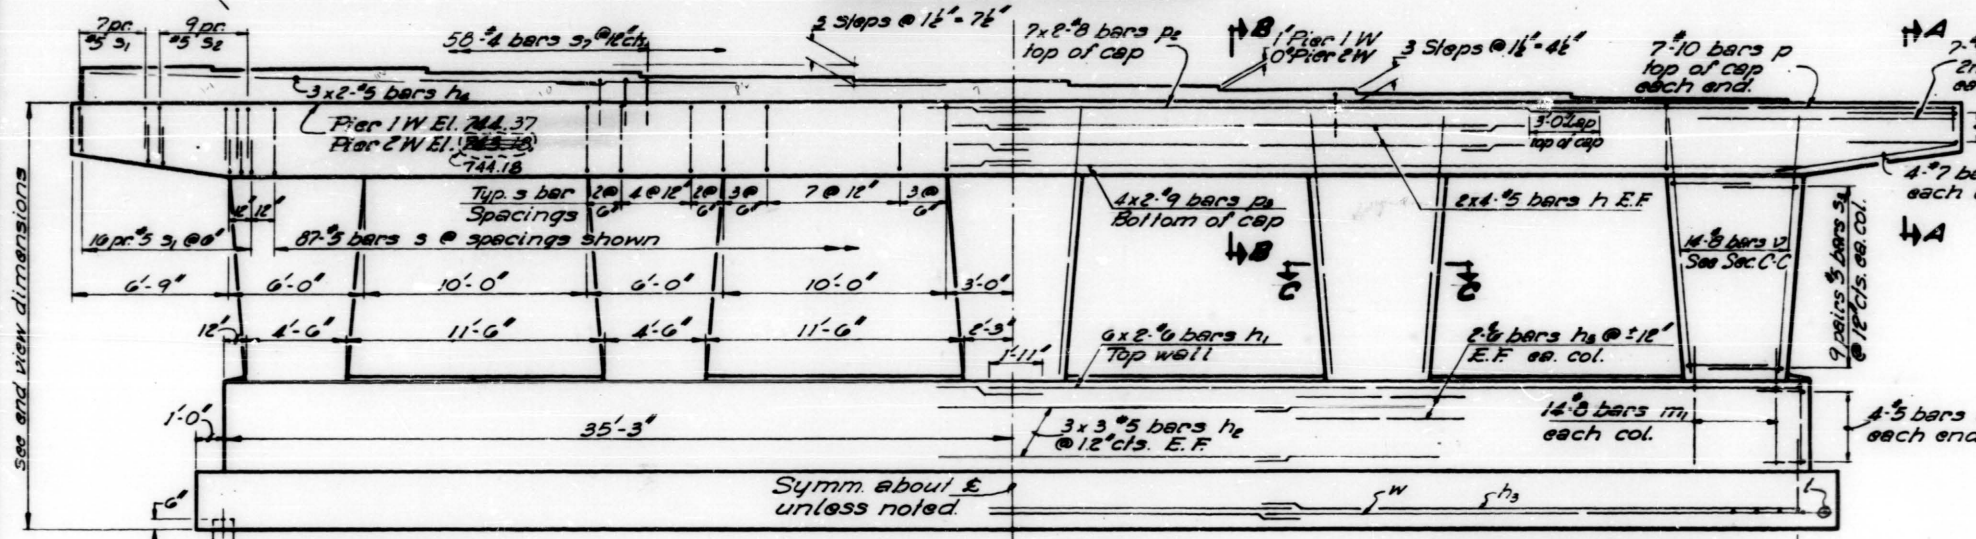 7 pr. 9 pr.
#5 s1 #5 s2
58-#4 bars s7 @ 12"cts.
5 Steps @ 1½" = 7½"
7x2-#8 bars p2
top of cap
B
1" Pier 1 W
0" Pier 2 W
3 Steps @ 1½" = 4½"
7-#10 bars p
top of cap
each end.
A
3x2-#5 bars h4
Pier 1 W El. 744.37
Pier 2 W El.
744.18
3'-0" Lap
top of cap
Typ. s bar
Spacings
2 @ 6"
4 @ 12"
2 @ 6"
3 @ 6"
7 @ 12"
3 @ 6"
4x2-#9 bars p3
Bottom of cap
2x4-#5 bars h E.F.
each
12" 12"
16 pr. #5 s1 @ 6"
87-#5 bars s @ spacings shown
B
14-#8 bars v
See Sec. C-C
A
9 pairs #5 bars s3
@ 12" cts. ea. col.
see end view dimensions
6'-9" 6'-0" 10'-0" 6'-0" 10'-0" 3'-0"
C C
12" 4'-6" 11'-6" 4'-6" 11'-6" 2'-3"
1'-11"
6x2-#6 bars h1
Top wall
2-#6 bars h5 @ ±12"
E.F. ea. col.
1'-0"
35'-3"
3x3 #5 bars h2
@ 12" cts. E.F.
14-#8 bars m1
each col.
4-#5 bars
each end
6"
Symm. about ℄
unless noted.
w h3 t